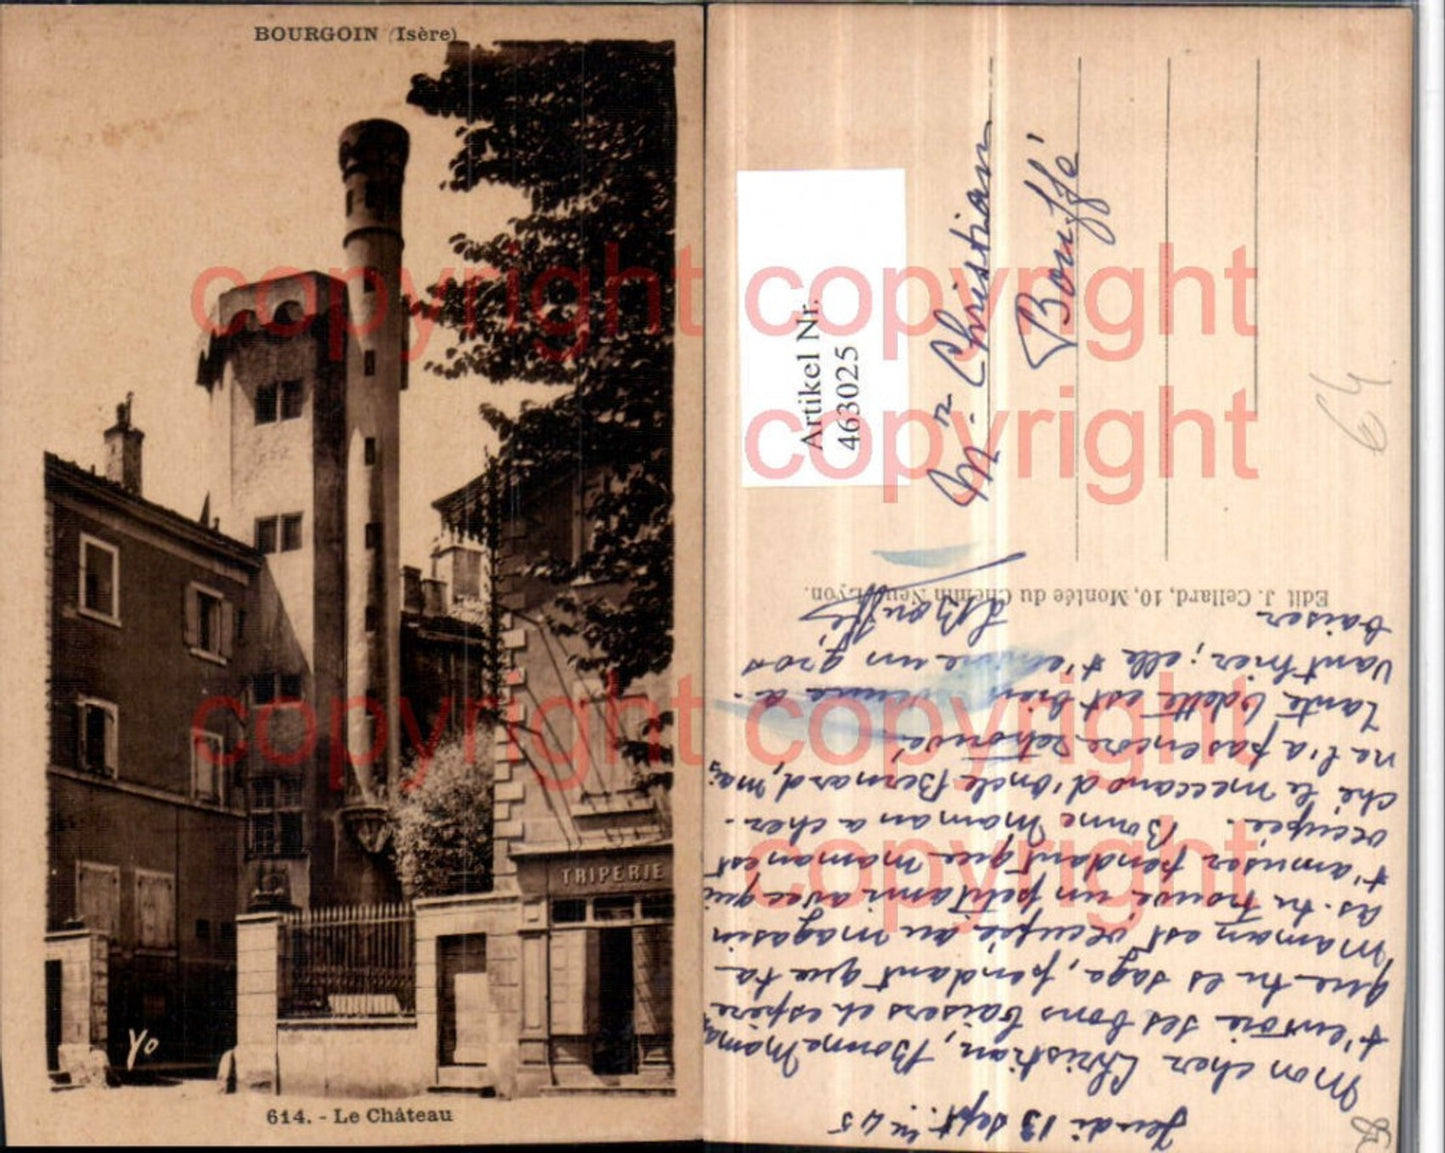 BOURGOIN (Isère)
TRIPERIE
Yo
614. - Le Château
Artikel Nr.
463025
Mr. Christian
Bouffé
64
Edit. J. Cellard, 10, Montée du Chemin Neuf, Lyon.
Jeudi 13 sept. 45
Mon cher Christian, Bonne Maman
t'envoie ses bons baisers et espère
que tu es sage, pendant que ta
Maman est occupée au magasin
as-tu trouvé un petit ami avec qui
t'amuser pendant que maman est
occupée. Bonne Maman a cher-
ché le meccano d'oncle Bernard, mais
ne l'a pas encore retrouvé.
Tante Odette est bien venue a-
vant hier; elle t'envoie un gros
baiser
Bouffé
copyright
copyright
copyright
copyright
copyright
copyright